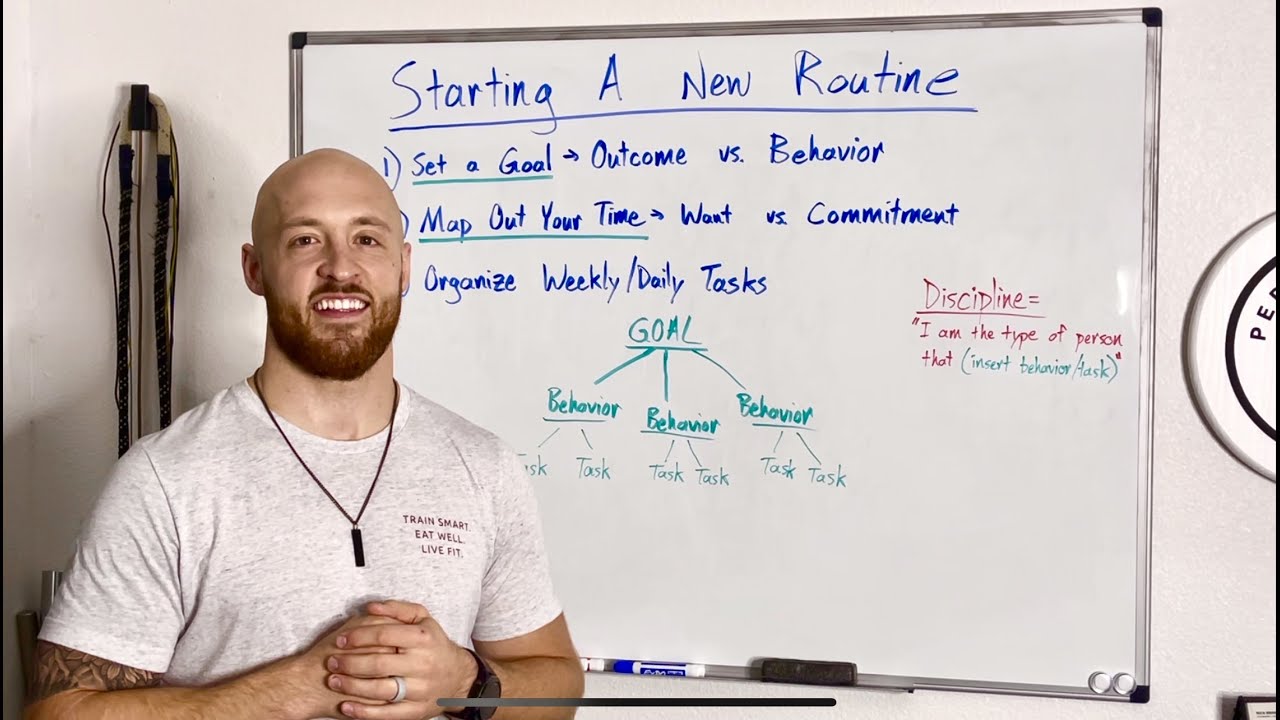 Starting A New Routine
1) Set a Goal → Outcome vs. Behavior
) Map Out Your Time → Want vs. Commitment
) Organize Weekly/Daily Tasks
Discipline=
"I am the type of person
that (insert behavior/task)"
GOAL
Behavior Behavior Behavior
Task Task Task Task Task
TRAIN SMART.
EAT WELL.
LIVE FIT.
EXPO